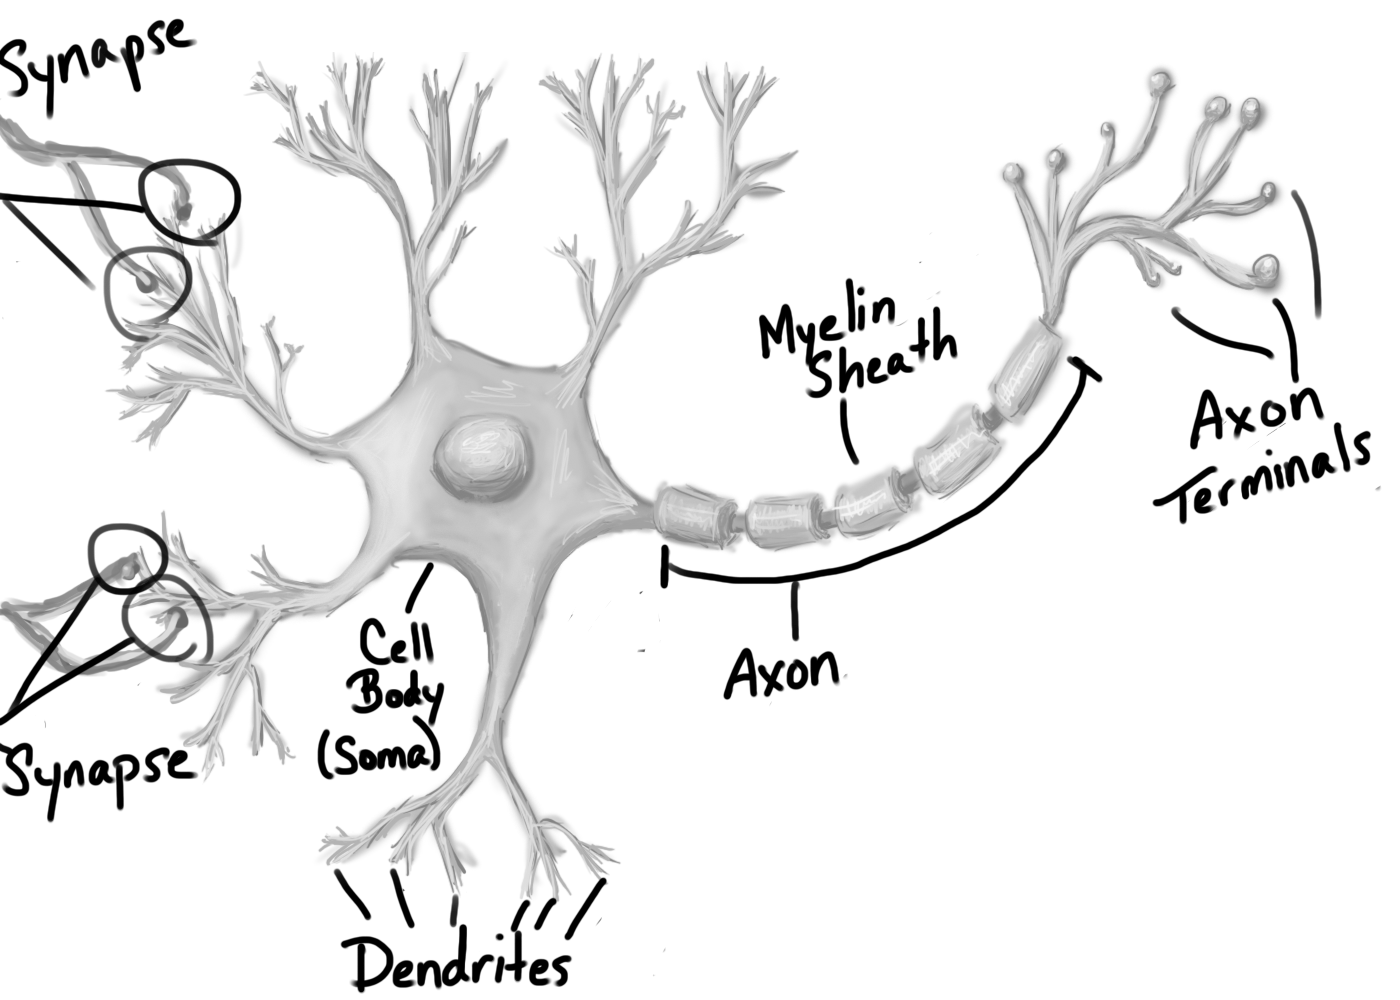 Synapse
Myelin
Sheath
Axon
Terminals
Cell
Body
(Soma)
Axon
Synapse
Dendrites